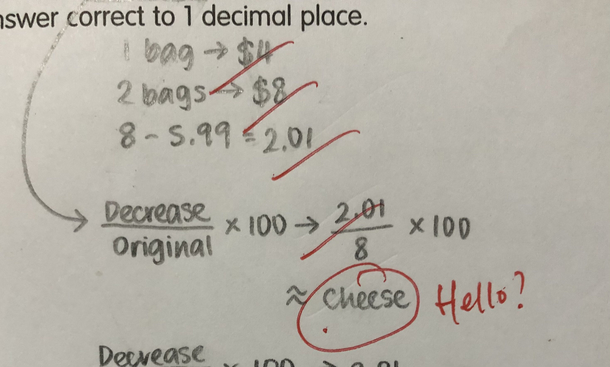 nswer correct to 1 decimal place.
1 bag → $4
2 bags → $8
8 - 5.99 = 2.01
Decrease
Original
× 100 → 2.01
8
× 100
≈ cheese Hello?
Decrease
× 100